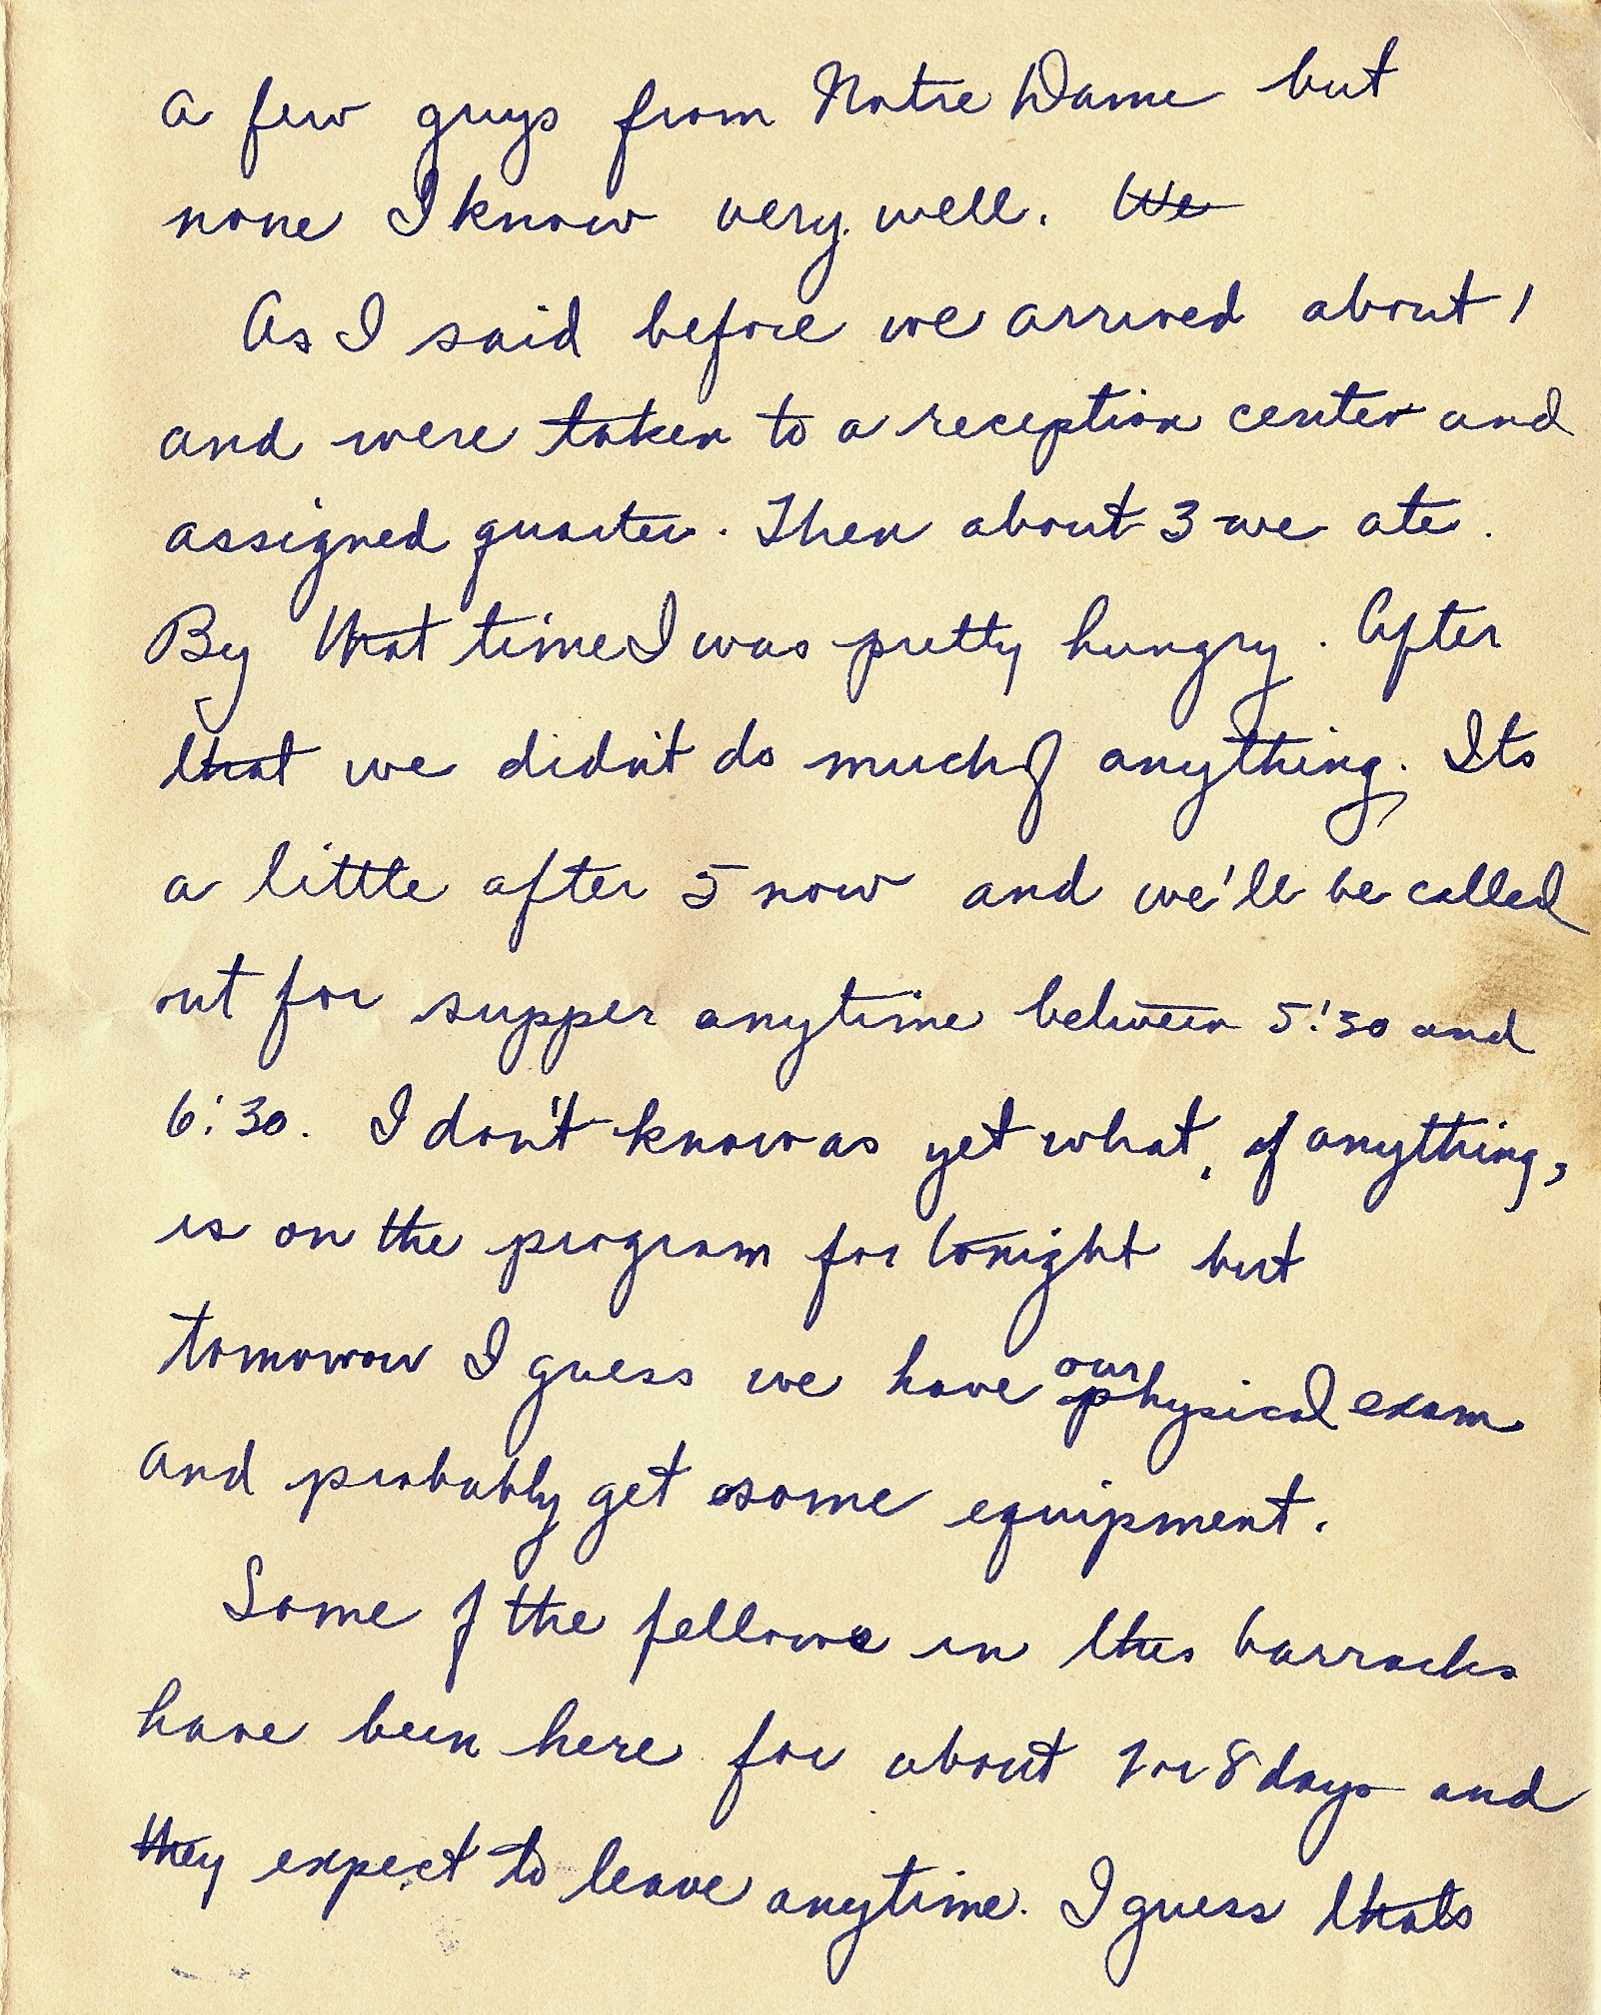 a few guys from Notre Dame but
none I know very well. We
As I said before we arrived about 1
and were taken to a reception center and
assigned quarter. Then about 3 we ate.
By that time I was pretty hungry. After
that we didn't do much of anything. Its
a little after 5 now and we'll be called
out for supper anytime between 5:30 and
6:30. I don't know as yet what, if anything,
is on the program for tonight but
tomorrow I guess we have our physical exam
and probably get some equipment.
Some of the fellows in this barracks
have been here for about 7 or 8 days and
they expect to leave anytime. I guess thats